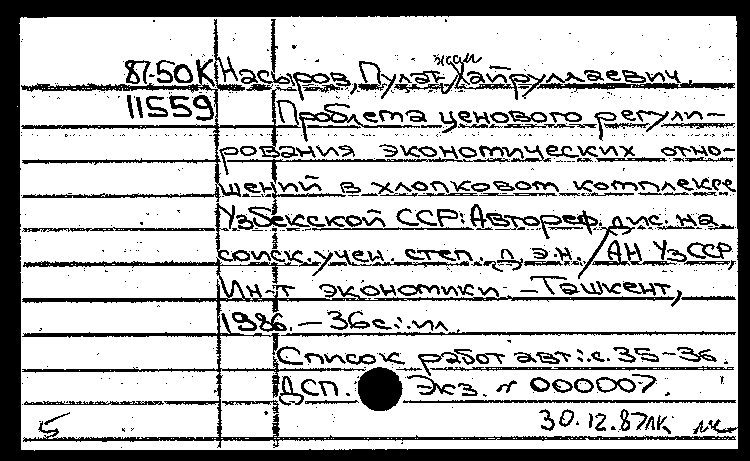 87-50К Насыров, Пулатжан Хайруллаевич.
11559 Проблема ценового регули-
рования экономических отно-
шений в хлопковом комплексе
Узбекской ССР: Автореф. дис. на
соиск. учен. степ. д. э.н. / АН УзССР,
Ин-т экономики. - Ташкент,
1986. - 36 с.: ил.
Список работ авт.: с. 35-36.
ДСП. Экз. № 000007.
5 30.12.87